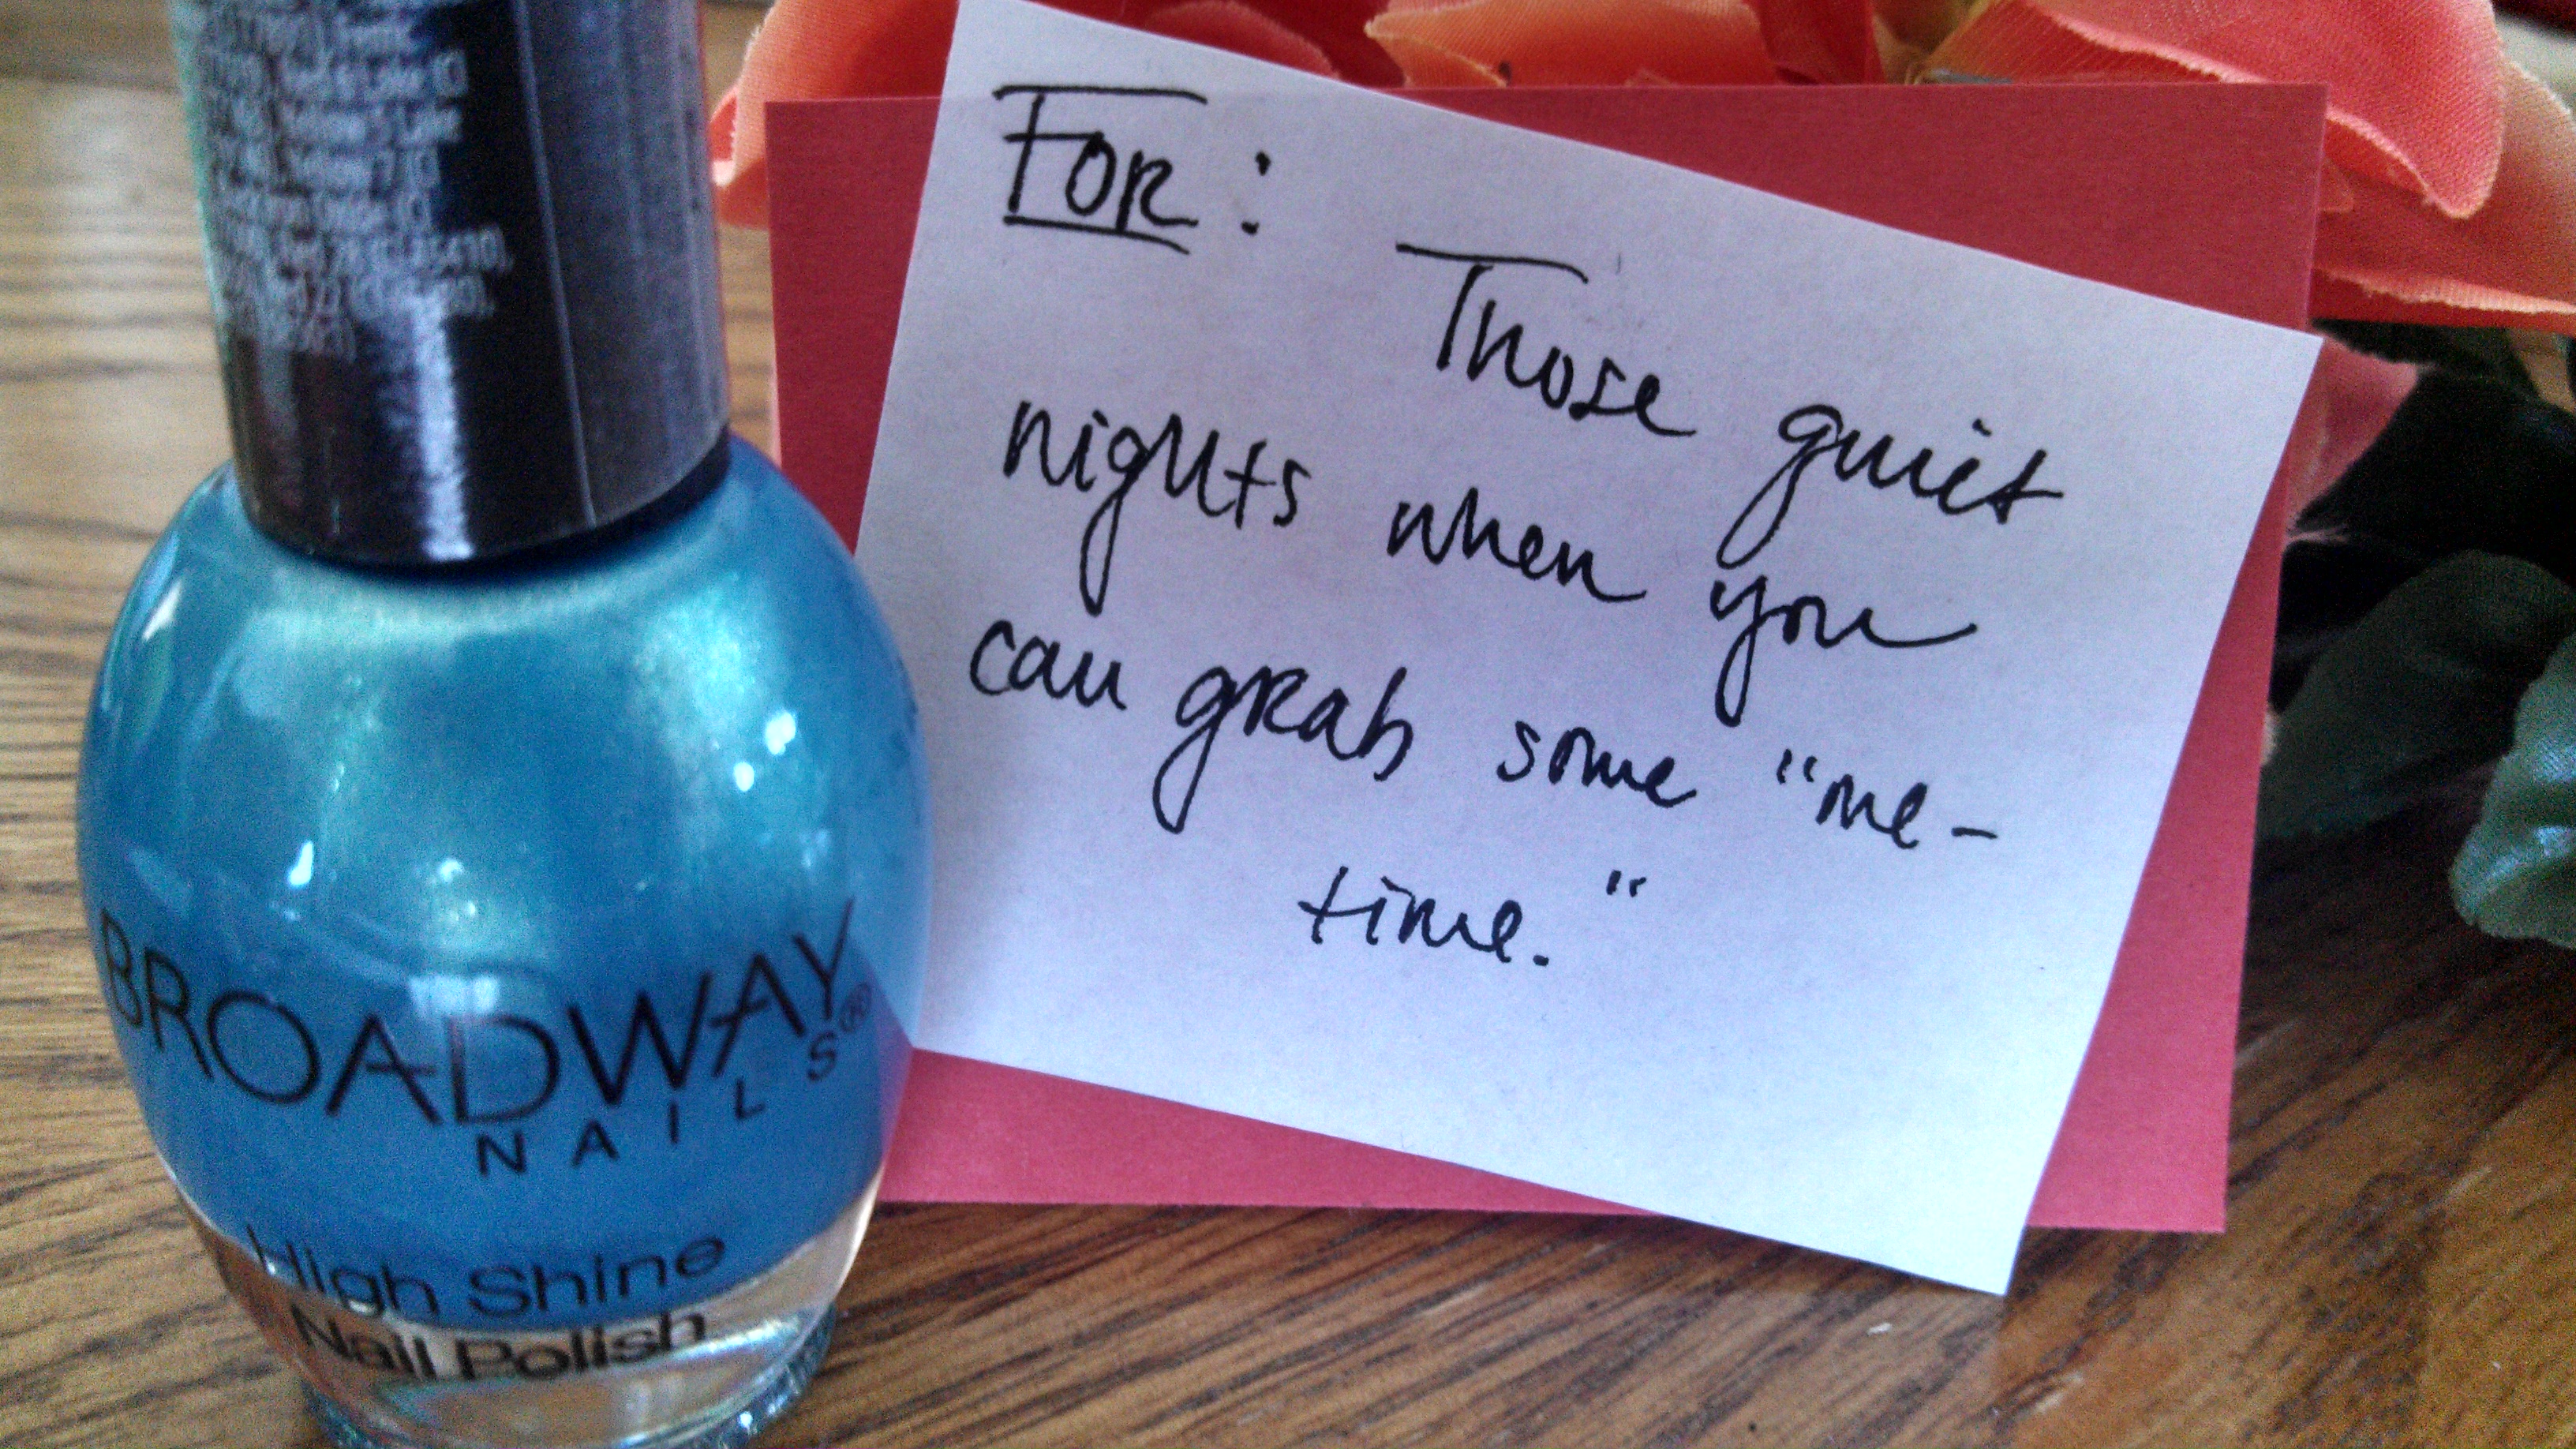 BROADWAY
NAILS®
High Shine
Nail Polish
FOR: Those quiet
nights when you
can grab some "me-
time."